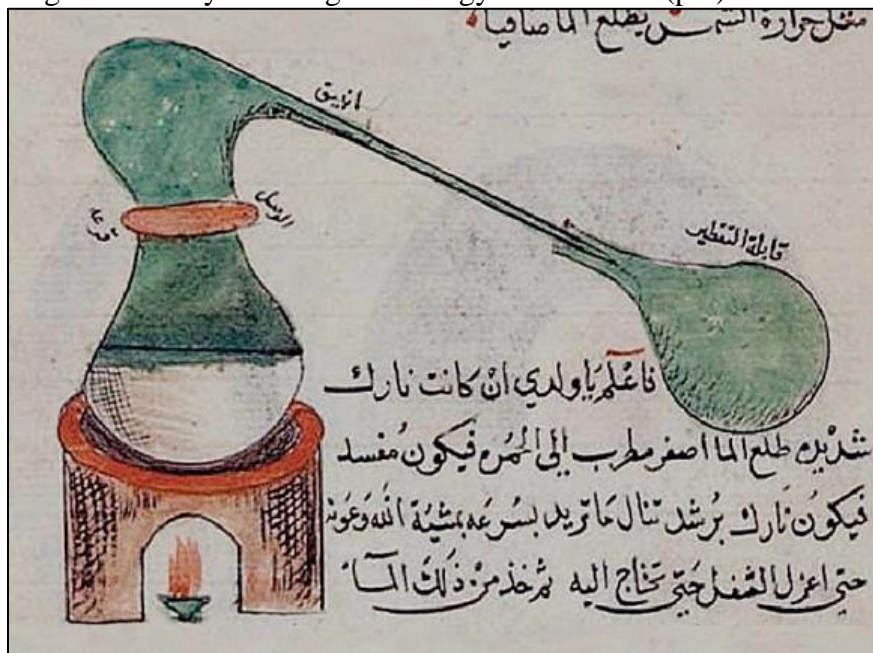 مثل حرارة الشمس يطلع الما صافيا
انبيق
الوصل
قرعة
قابلة التقطير
فاعلم يا ولدي ان كانت نارك
شديده طلع الما اصفر مطرب الى الحمره فيكون مفسد
فيكون نارك برشد تنال ما تريد بسرعه بمشيئة الله وعونه
حتى اعزل الثفل حتى تحتاج اليه ثم خذ من ذلك الماء